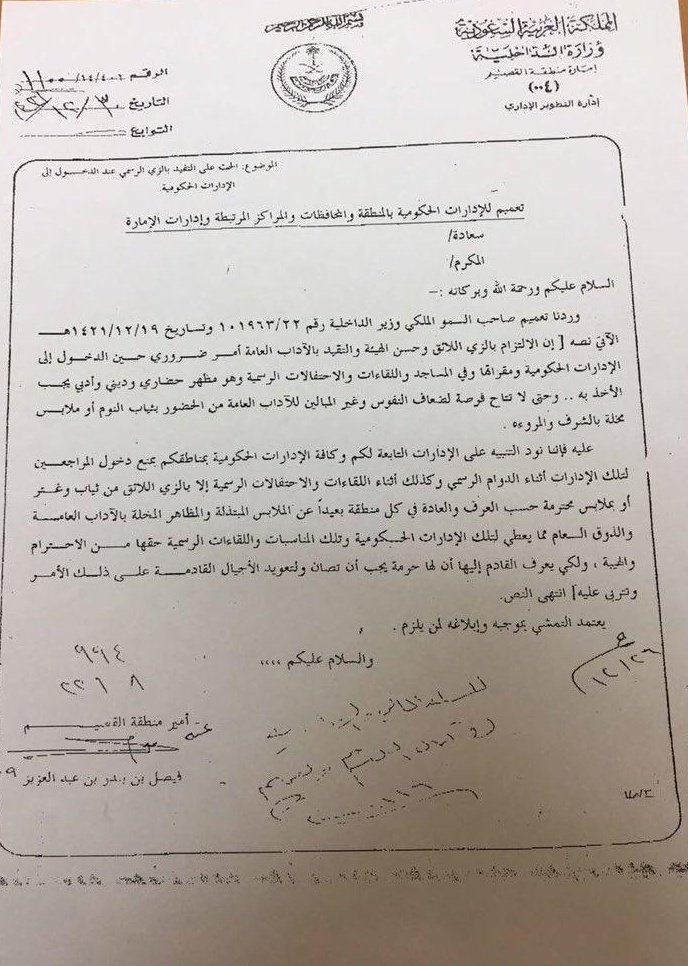 بسم الله الرحمن الرحيم
المملكة العربية السعودية
وزارة الداخلية
إمارة منطقة القصيم
(٠٠٤)
إدارة التطوير الإداري
الرقم
التاريخ
التوابع
الموضوع: الحث على التقيد بالزي الرسمي عند الدخول إلى
الإدارات الحكومية
تعميم للإدارات الحكومية بالمنطقة والمحافظات والمراكز المرتبطة وإدارات الإمارة
سعادة/
المكرم/
السلام عليكم ورحمة الله وبركاته :-
وردنا تعميم صاحب السمو الملكي وزير الداخلية رقم ١٠١٩٦٣/٢٢ وتساريخ ١٤٢١/١٢/١٩هـ
الآتي نصه [ إن الالتزام بالزي اللائق وحسن الهيئة والتقيد بالآداب العامة أمر ضروري حسين الدخول إلى
الإدارات الحكومية ومقراتها وفي المساجد واللقاءات والاحتفالات الرسمية وهو مظهر حضاري وديني وأدبي يجب
الأخذ به .. وحتى لا تتاح فرصة لضعاف النفوس وغير المبالين للآداب العامة من الحضور بثياب النوم أو ملابس
مخلة بالشرف والمروءه .
عليه فإننا نود التنبيه على الإدارات التابعة لكم وكافة الإدارات الحكومية بمناطقكم بمنع دخول المراجعين
لتلك الإدارات أثناء الدوام الرسمي وكذلك أثناء اللقاءات والاحتفالات الرسمية إلا بالزي اللائق من ثياب وغتر
أو بملابس محترمة حسب العرف والعادة في كل منطقة بعيداً عن الملابس المبتذلة والمظاهر المخلة بالآداب العامة
والذوق العام مما يعطي لتلك الإدارات الحكومية وتلك المناسبات واللقاءات الرسمية حقها من الاحترام
والهيبة ، ولكي يعرف القادم إليها أن لها حرمة يجب أن تصان ولتعويد الأجيال القادمة على ذلك الأمر
وتتربى عليه] انتهى النص.
يعتمد التمشي بموجبه وإبلاغه لمن يلزم .
والسلام عليكم ،،،،
١٢/٢٦
أمير منطقة القصيم
فيصل بن بندر بن عبد العزيز